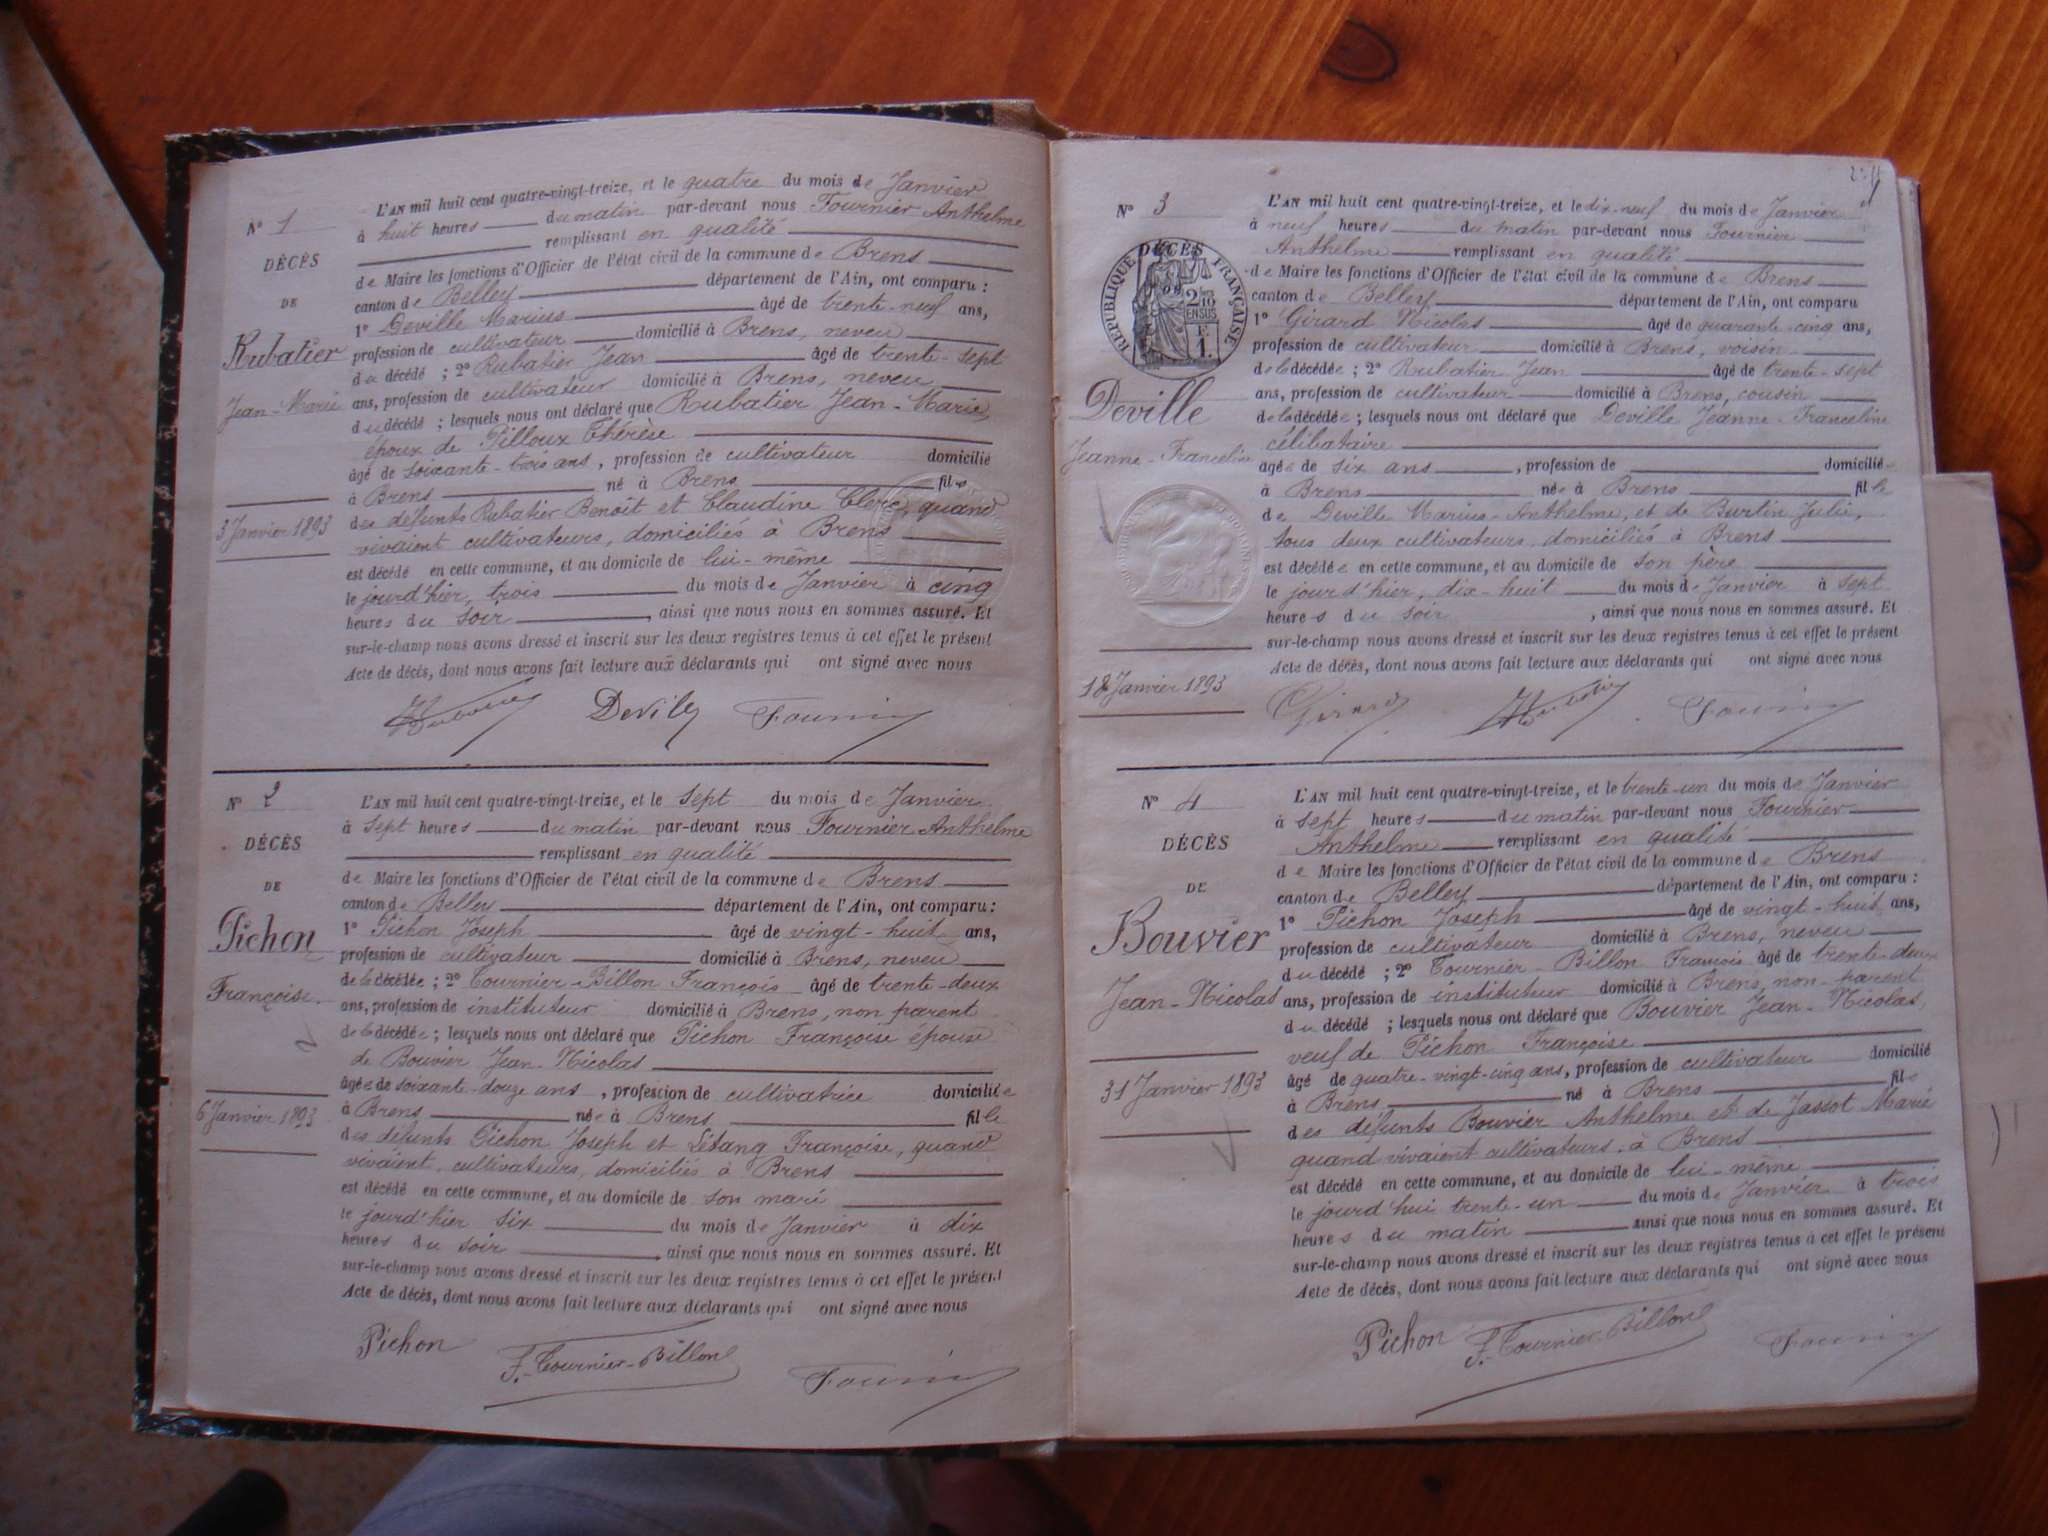 N° 1
DÉCÈS
DE
Rubatier
Jean-Marie
3 Janvier 1893
L'AN mil huit cent quatre-vingt-treize, et le quatre du mois de Janvier
à huit heures du matin par-devant nous Fournier Anthelme
remplissant en qualité
de Maire les fonctions d'Officier de l'état civil de la commune de Brens
canton de Belley département de l'Ain, ont comparu :
1° Deville Marius âgé de trente-neuf ans,
profession de cultivateur domicilié à Brens, neveu
du décédé ; 2° Rubatier Jean âgé de trente-sept
ans, profession de cultivateur domicilié à Brens, neveu
du décédé ; lesquels nous ont déclaré que Rubatier Jean-Marie,
époux de Pilloux Thérèse
âgé de soixante-trois ans, profession de cultivateur domicilié
à Brens né à Brens fils
des défunts Rubatier Benoît et Claudine Clerc, quand
vivaient cultivateurs, domiciliés à Brens
est décédé en cette commune, et au domicile de lui-même
le jourd'hier, trois du mois de Janvier à cinq
heures du soir, ainsi que nous nous en sommes assuré. Et
sur-le-champ nous avons dressé et inscrit sur les deux registres tenus à cet effet le présent
Acte de décès, dont nous avons fait lecture aux déclarants qui ont signé avec nous
Devile
N° 2
DÉCÈS
DE
Pichon
Françoise
6 Janvier 1893
L'AN mil huit cent quatre-vingt-treize, et le sept du mois de Janvier
à sept heures du matin par-devant nous Fournier Anthelme
remplissant en qualité
de Maire les fonctions d'Officier de l'état civil de la commune de Brens
canton de Belley département de l'Ain, ont comparu :
1° Pichon Joseph âgé de vingt-huit ans,
profession de cultivateur domicilié à Brens, neveu
de la décédée ; 2° Tournier-Billon François âgé de trente-deux
ans, profession de instituteur domicilié à Brens, non parent
de la décédée ; lesquels nous ont déclaré que Pichon Françoise épouse
de Bouvier Jean-Nicolas
âgée de soixante-douze ans, profession de cultivatrice domiciliée
à Brens née à Brens fille
des défunts Pichon Joseph et Létang Françoise, quand
vivaient, cultivateurs, domiciliés à Brens
est décédé en cette commune, et au domicile de son mari
le jourd'hier six du mois de Janvier à dix
heures du soir, ainsi que nous nous en sommes assuré. Et
sur-le-champ nous avons dressé et inscrit sur les deux registres tenus à cet effet le présent
Acte de décès, dont nous avons fait lecture aux déclarants qui ont signé avec nous
Pichon F. Tournier-Billon
N° 3
DÉCÈS
RÉPUBLIQUE FRANÇAISE
2/10 EN SUS
1 F.
Deville
Jeanne-Franceline
18 Janvier 1893
L'AN mil huit cent quatre-vingt-treize, et le dix-neuf du mois de Janvier
à neuf heures du matin par-devant nous Fournier
Anthelme remplissant en qualité
de Maire les fonctions d'Officier de l'état civil de la commune de Brens
canton de Belley département de l'Ain, ont comparu
1° Girard Nicolas âgé de quarante-cinq ans,
profession de cultivateur domicilié à Brens, voisin
de la décédée ; 2° Rubatier Jean âgé de trente-sept
ans, profession de cultivateur domicilié à Brens, cousin
de la décédée ; lesquels nous ont déclaré que Deville Jeanne-Franceline
célibataire
âgée de six ans, profession de domiciliée
à Brens née à Brens fille
de Deville Marius-Anthelme, et de Burtin Julie,
tous deux cultivateurs, domiciliés à Brens
est décédée en cette commune, et au domicile de son père
le jourd'hier, dix-huit du mois de Janvier à sept
heures du soir, ainsi que nous nous en sommes assuré. Et
sur-le-champ nous avons dressé et inscrit sur les deux registres tenus à cet effet le présent
Acte de décès, dont nous avons fait lecture aux déclarants qui ont signé avec nous
Girard
N° 4
DÉCÈS
DE
Bouvier
Jean-Nicolas
31 Janvier 1893
L'AN mil huit cent quatre-vingt-treize, et le trente-un du mois de Janvier
à sept heures du matin par-devant nous Fournier
Anthelme remplissant en qualité
de Maire les fonctions d'Officier de l'état civil de la commune de Brens
canton de Belley département de l'Ain, ont comparu :
1° Pichon Joseph âgé de vingt-huit ans,
profession de cultivateur domicilié à Brens, neveu
du décédé ; 2° Tournier-Billon François âgé de trente-deux
ans, profession de instituteur domicilié à Brens, non-parent
du décédé ; lesquels nous ont déclaré que Bouvier Jean-Nicolas,
veuf de Pichon Françoise
âgé de quatre-vingt-cinq ans, profession de cultivateur domicilié
à Brens né à Brens fils
des défunts Bouvier Anthelme et de Jassot Marie
quand vivaient cultivateurs, à Brens
est décédé en cette commune, et au domicile de lui-même
le jourd'hui trente-un du mois de Janvier à trois
heures du matin ainsi que nous nous en sommes assuré. Et
sur-le-champ nous avons dressé et inscrit sur les deux registres tenus à cet effet le présent
Acte de décès, dont nous avons fait lecture aux déclarants qui ont signé avec nous
Pichon F. Tournier-Billon